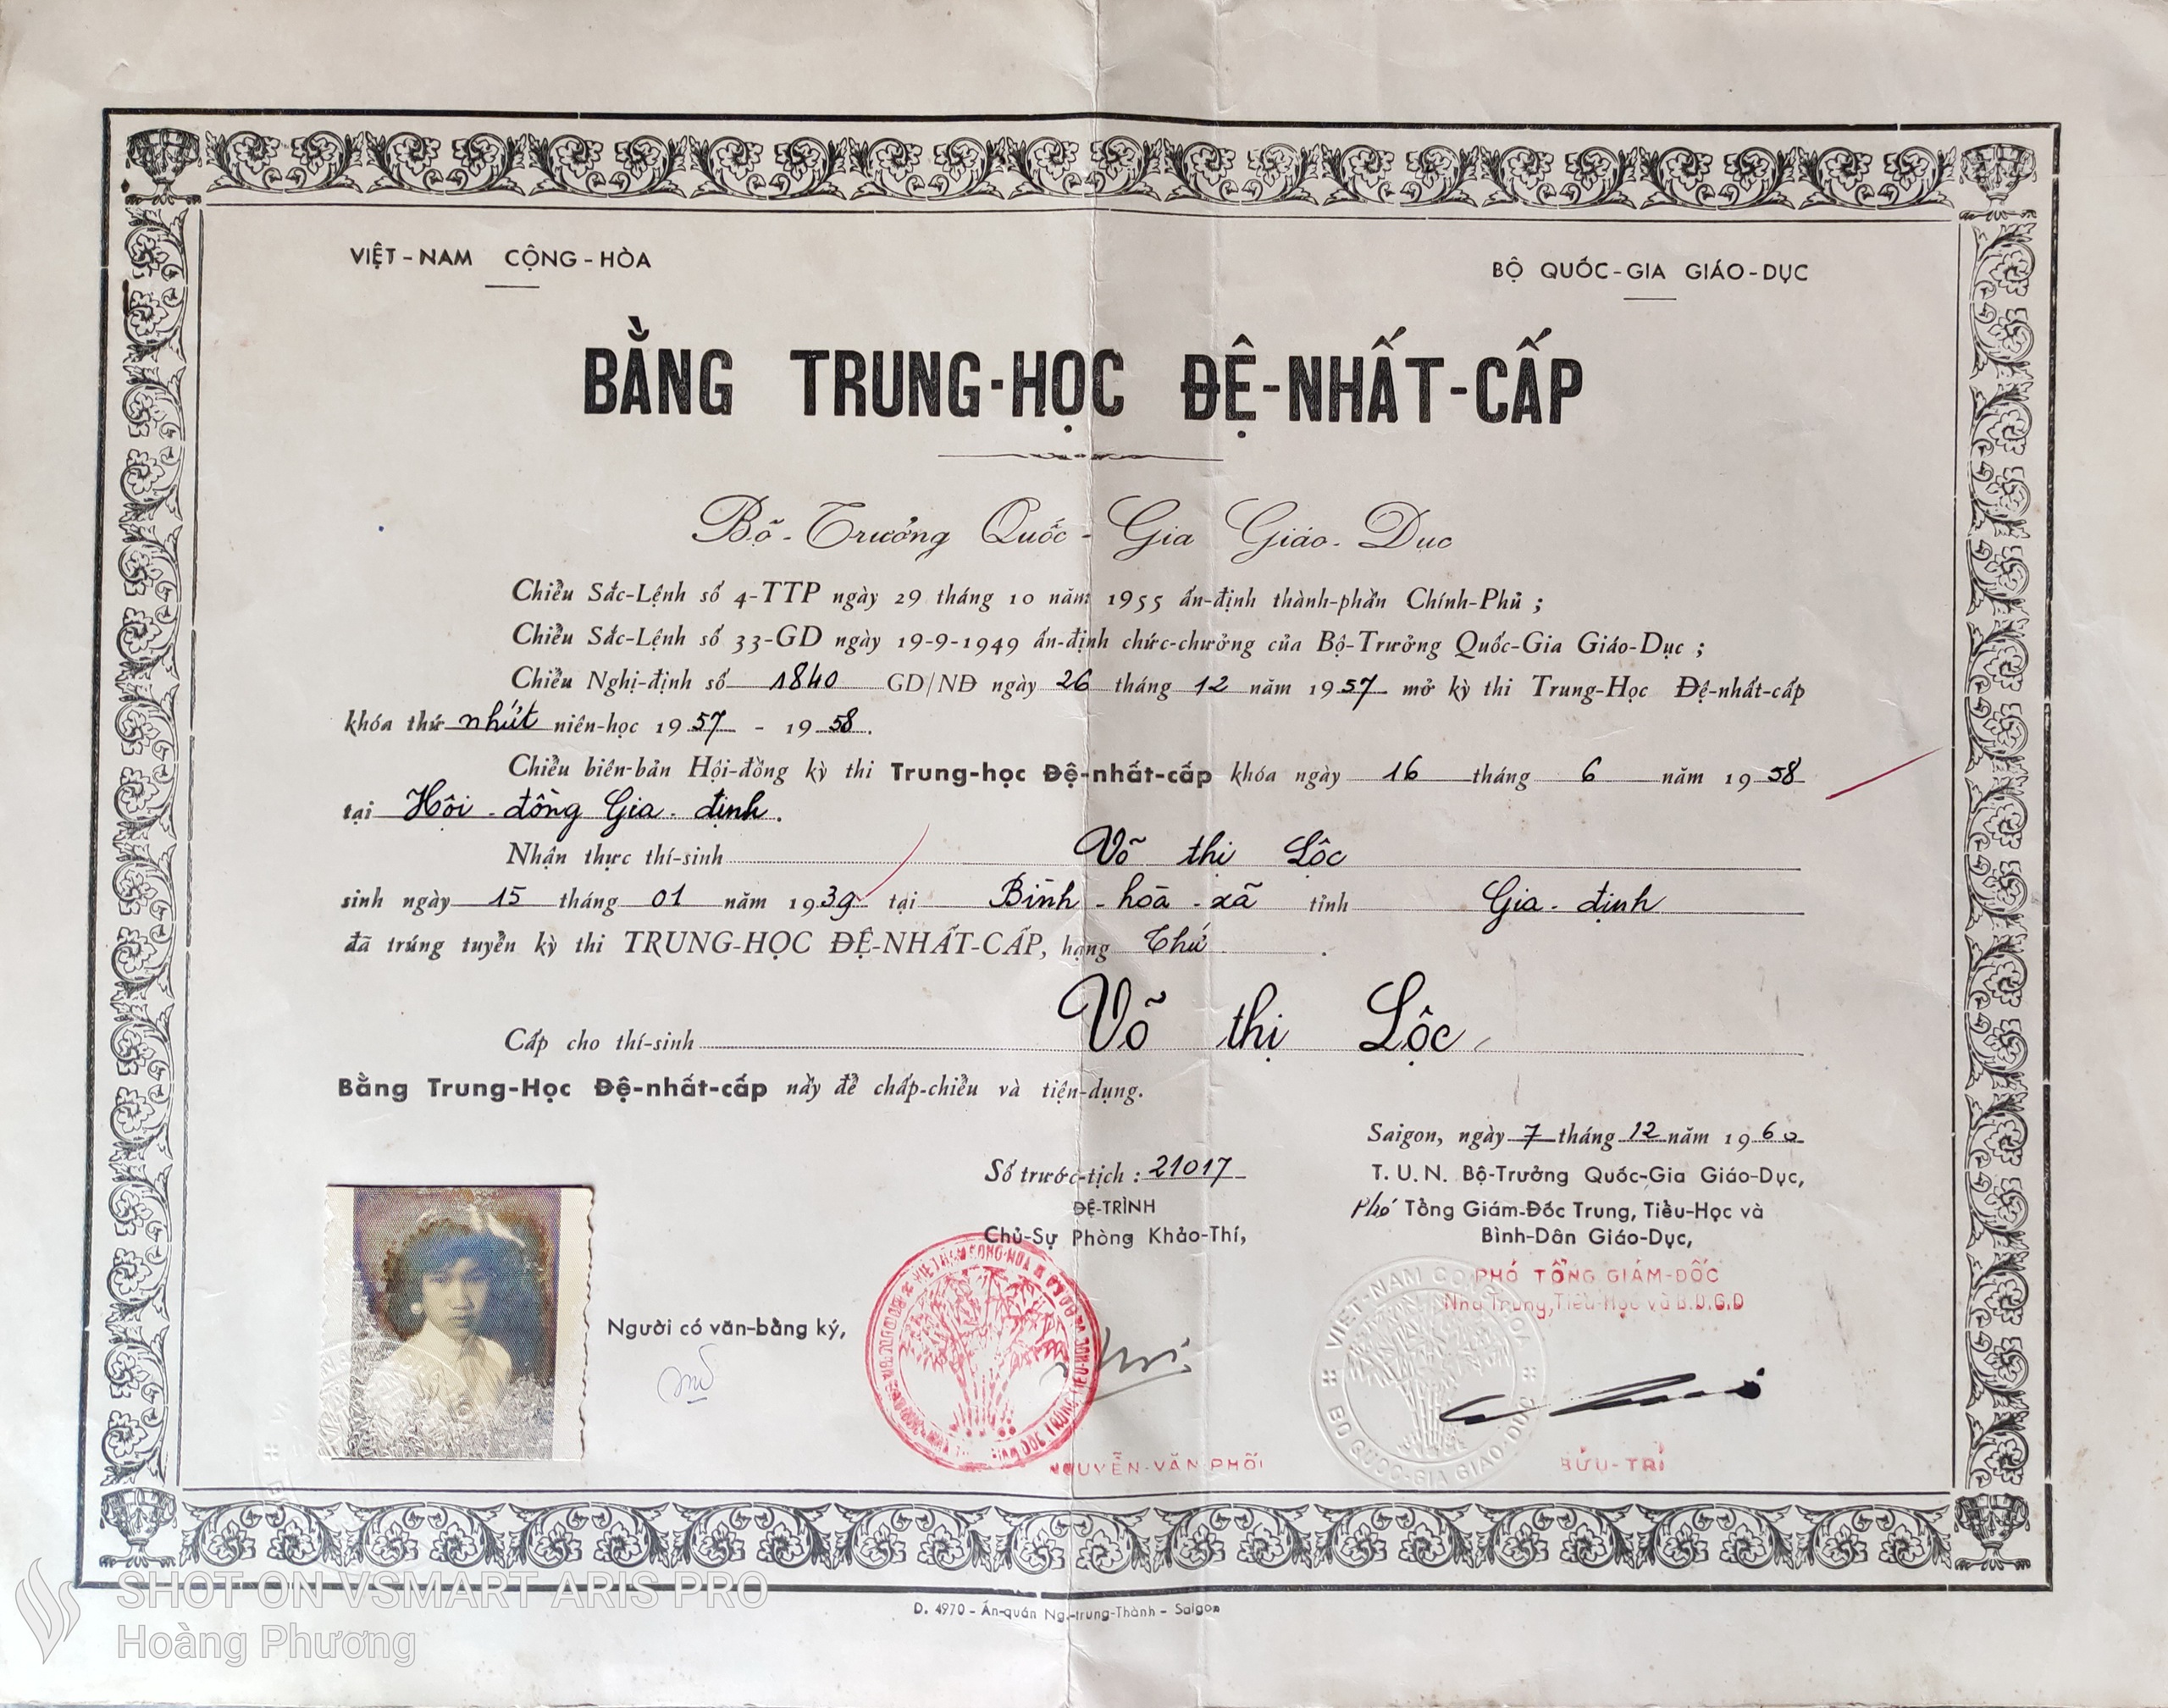 VIỆT-NAM CỘNG-HÒA
BỘ QUỐC-GIA GIÁO-DỤC
BẰNG TRUNG-HỌC ĐỆ-NHẤT-CẤP
Bộ-Trưởng Quốc-Gia Giáo-Dục
Chiếu Sắc-Lệnh số 4-TTP ngày 29 tháng 10 năm 1955 ấn-định thành-phần Chính-Phủ ;
Chiếu Sắc-Lệnh số 33-GD ngày 19-9-1949 ấn-định chức-chưởng của Bộ-Trưởng Quốc-Gia Giáo-Dục ;
Chiếu Nghị-định số 1840 GD/NĐ ngày 26 tháng 12 năm 1957 mở kỳ thi Trung-Học Đệ-nhất-cấp
khóa thứ nhứt niên-học 1957 - 1958.
Chiếu biên-bản Hội-đồng kỳ thi Trung-học Đệ-nhất-cấp khóa ngày 16 tháng 6 năm 1958
tại Hội-đồng Gia-định.
Nhận thực thí-sinh Võ thị Lộc
sinh ngày 15 tháng 01 năm 1939 tại Bình-hòa-xã tỉnh Gia-định
đã trúng tuyển kỳ thi TRUNG-HỌC ĐỆ-NHẤT-CẤP, hạng Thứ.
Cấp cho thí-sinh Võ thị Lộc
Bằng Trung-Học Đệ-nhất-cấp nầy để chấp-chiếu và tiện-dụng.
Saigon, ngày 7 tháng 12 năm 1960
Số trước-tịch : 21017
T.U.N. Bộ-Trưởng Quốc-Gia Giáo-Dục,
ĐỆ-TRÌNH
Phó Tổng Giám-Đốc Trung, Tiểu-Học và
Chủ-Sự Phòng Khảo-Thí,
Bình-Dân Giáo-Dục,
PHÓ TỔNG GIÁM-ĐỐC
Nha Trung, Tiểu-Học và B.D.G.D
VIỆT-NAM CỘNG-HÒA
BỘ QUỐC-GIA GIÁO-DỤC
Người có văn-bằng ký,
NGUYỄN-VĂN-PHỐI
BỬU-TRÍ
D. 4970 - Ấn-quán Ng.-trung-Thành - Saigon
SHOT ON VSMART ARIS PRO
Hoàng Phương